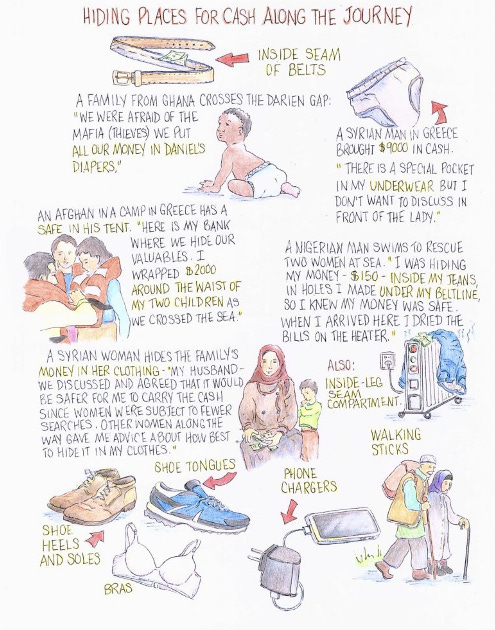 HIDING PLACES FOR CASH ALONG THE JOURNEY
INSIDE SEAM
OF BELTS
A FAMILY FROM GHANA CROSSES THE DARIEN GAP:
"WE WERE AFRAID OF THE
MAFIA (THIEVES) WE PUT
ALL OUR MONEY IN DANIEL'S
DIAPERS."
A SYRIAN MAN IN GREECE
BROUGHT $9000 IN CASH.
"THERE IS A SPECIAL POCKET
IN MY UNDERWEAR BUT I
DON'T WANT TO DISCUSS IN
FRONT OF THE LADY."
AN AFGHAN IN A CAMP IN GREECE HAS A
SAFE IN HIS TENT. "HERE IS MY BANK
WHERE WE HIDE OUR
VALUABLES. I
WRAPPED $2000
AROUND THE WAIST OF
MY TWO CHILDREN AS
WE CROSSED THE SEA."
A NIGERIAN MAN SWIMS TO RESCUE
TWO WOMEN AT SEA. "I WAS HIDING
MY MONEY - $150 - INSIDE MY JEANS,
IN HOLES I MADE UNDER MY BELTLINE,
SO I KNEW MY MONEY WAS SAFE.
WHEN I ARRIVED HERE I DRIED THE
BILLS ON THE HEATER."
A SYRIAN WOMAN HIDES THE FAMILY'S
MONEY IN HER CLOTHING - "MY HUSBAND-
WE DISCUSSED AND AGREED THAT IT WOULD
BE SAFER FOR ME TO CARRY THE CASH
SINCE WOMEN WERE SUBJECT TO FEWER
SEARCHES. OTHER WOMEN ALONG THE
WAY GAVE ME ADVICE ABOUT HOW BEST
TO HIDE IT IN MY CLOTHES."
ALSO:
INSIDE-LEG
SEAM
COMPARTMENT
WALKING
STICKS
SHOE TONGUES
PHONE
CHARGERS
SHOE
HEELS
AND SOLES
BRAS